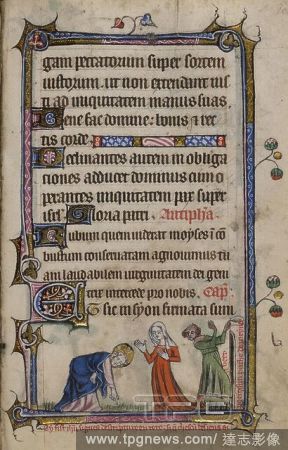 gam peccatorum super sortem
iustorum. ut non extendant ius
ti ad iniquitatem manus suas.
Bene fac domine: bonis ⁊ rec
tis corde.
Declinantes autem in obliga
ciones adducet dominus cum o
perantes iniquitatem pax super
isrł. Gloria patri. Antipħa.
Rubum quem uiderat moyses ĩcõ
bustum conseruatam agnouimus tu
am laudabilem uirginitatem dei geni
trix intercede pro nobis. Cap̃.
Et sic in syon firmata sum
www.tpgnews.com | 達志影像